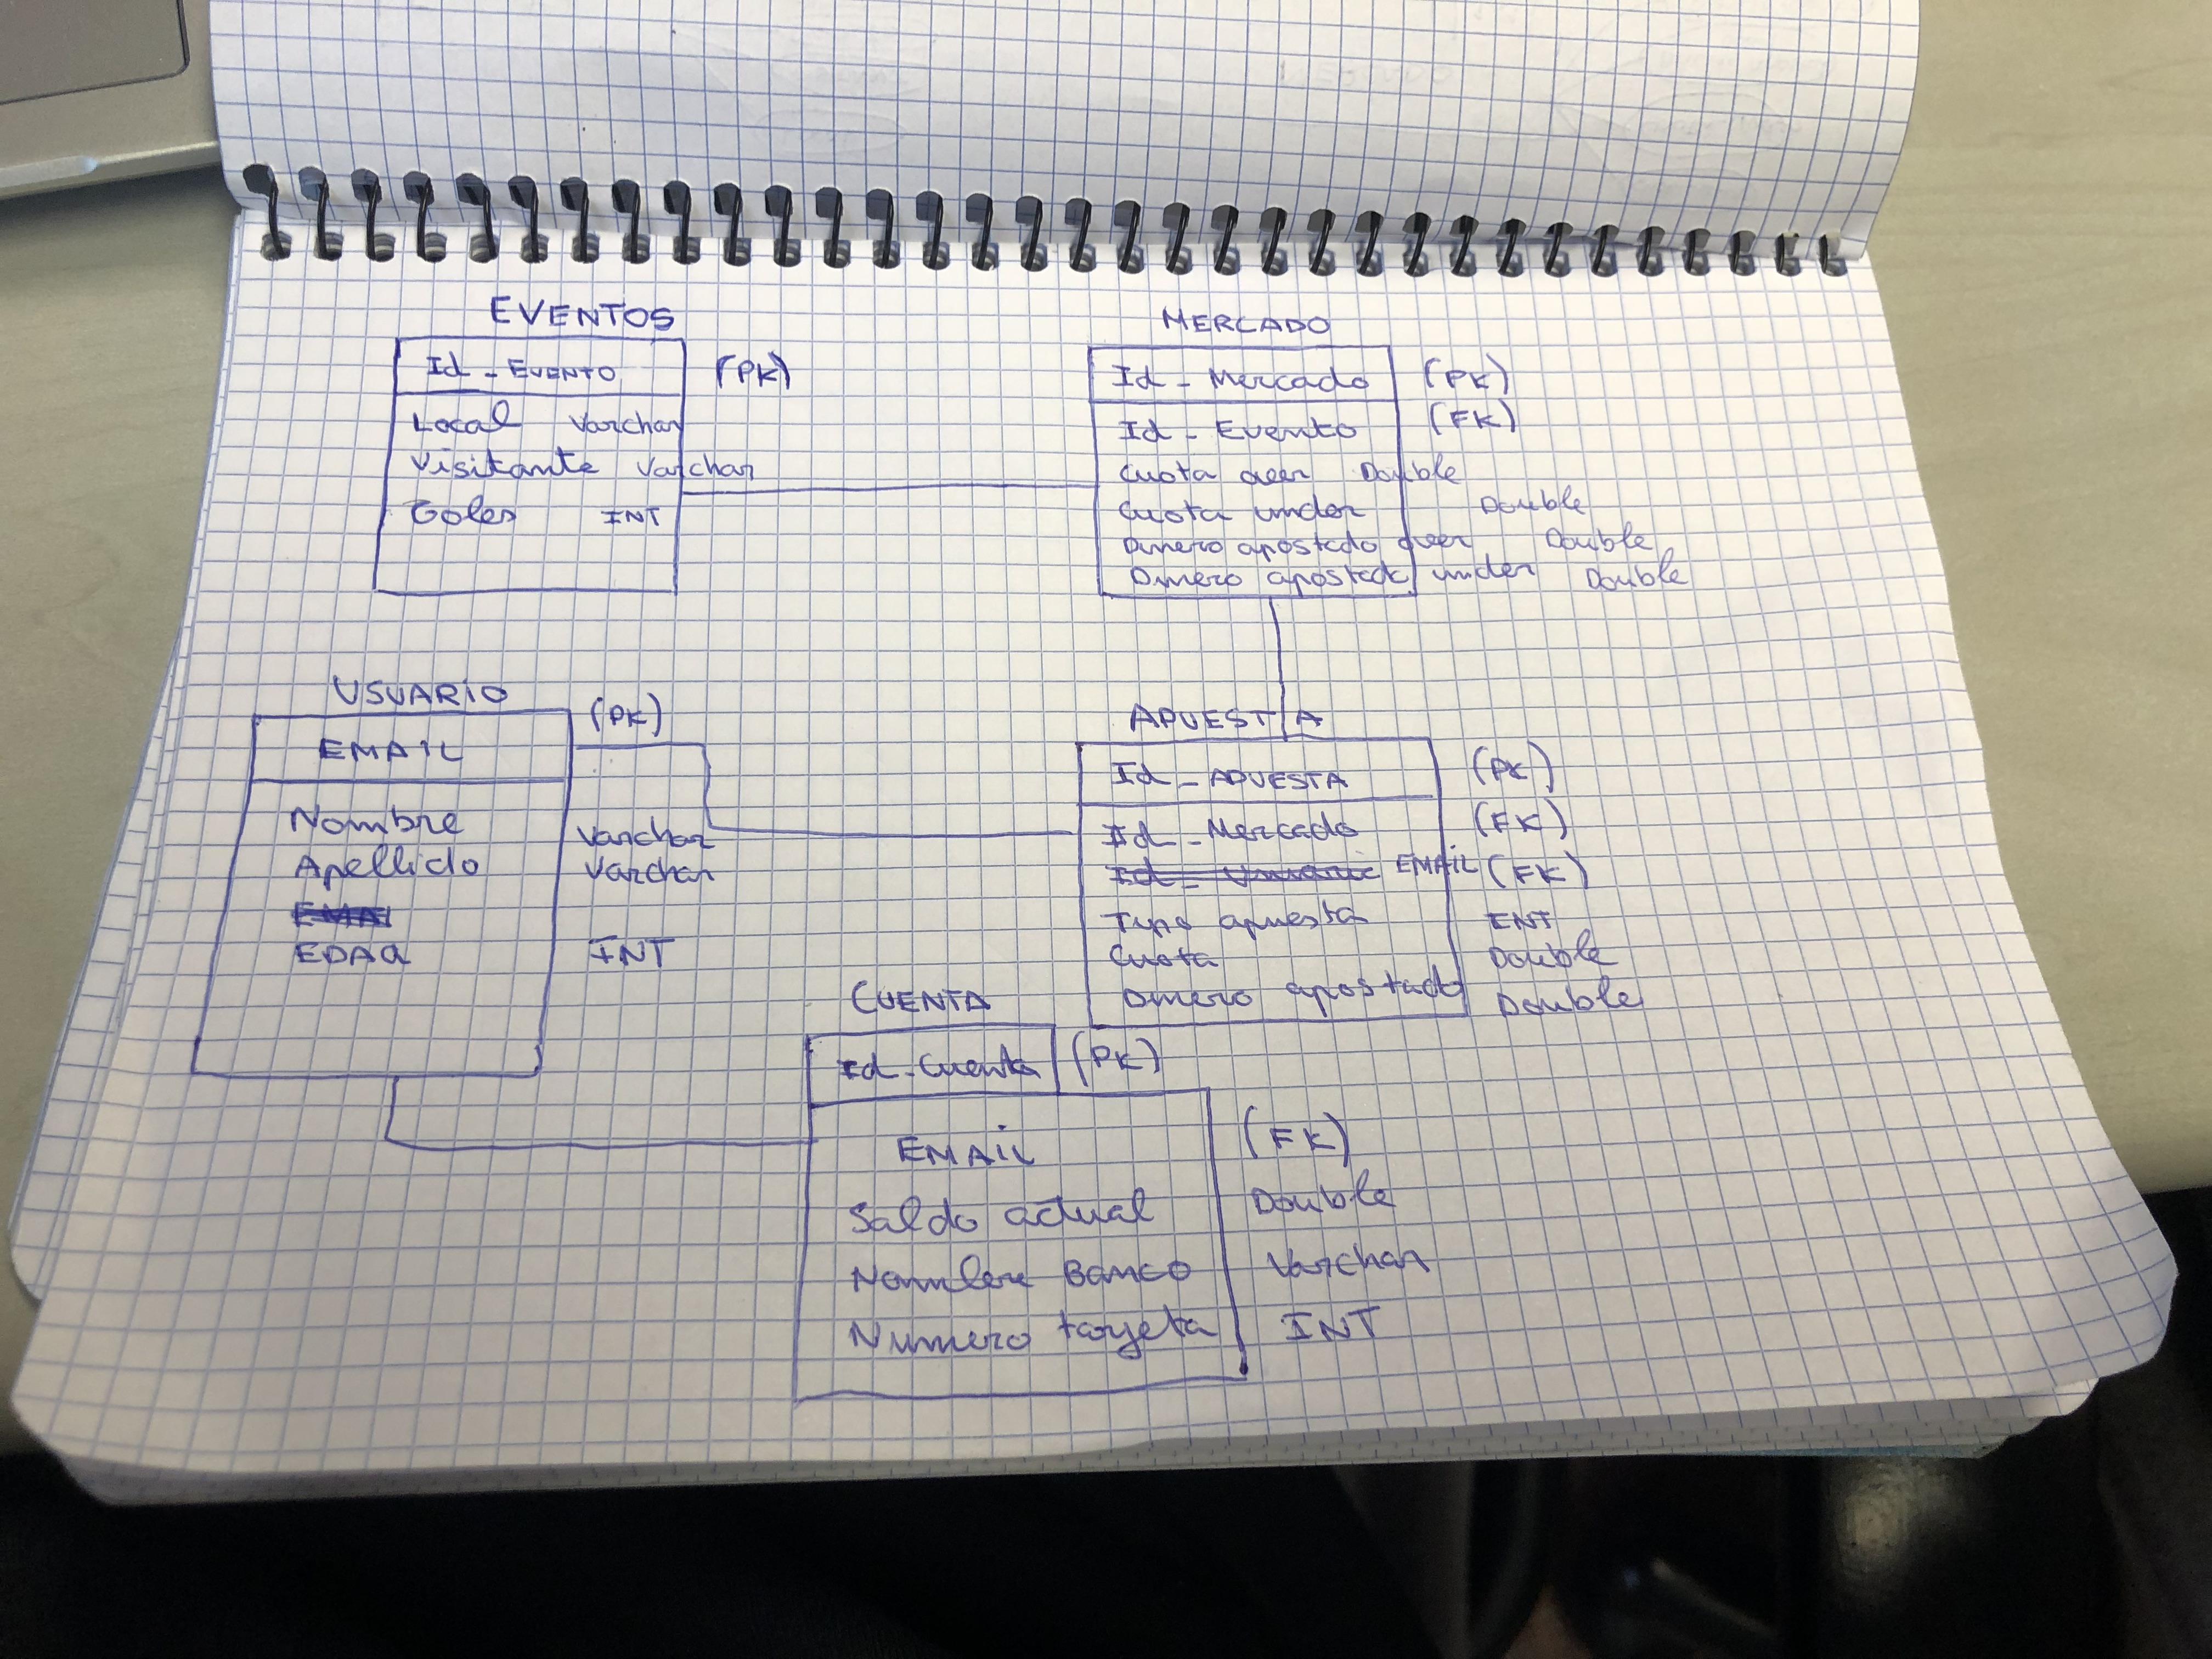 EVENTOS
Id-EVENTO (PK)
Local Varchar
Visitante Varchar
Goles INT
MERCADO
Id-Mercado (PK)
Id-Evento (FK)
Cuota over Double
Cuota under Double
Dinero apostado over Double
Dinero apostado under Double
USUARIO
EMAIL (PK)
Nombre Varchar
Apellido Varchar
EDAd INT
APUESTA
Id-APUESTA (PK)
Id-Mercado (FK)
EMAIL (FK)
Tipo apuesta INT
Cuota Double
Dinero apostado Double
CUENTA
Id-Cuenta (PK)
EMAIL (FK)
Saldo actual Double
Nombre Banco Varchar
Numero tarjeta INT